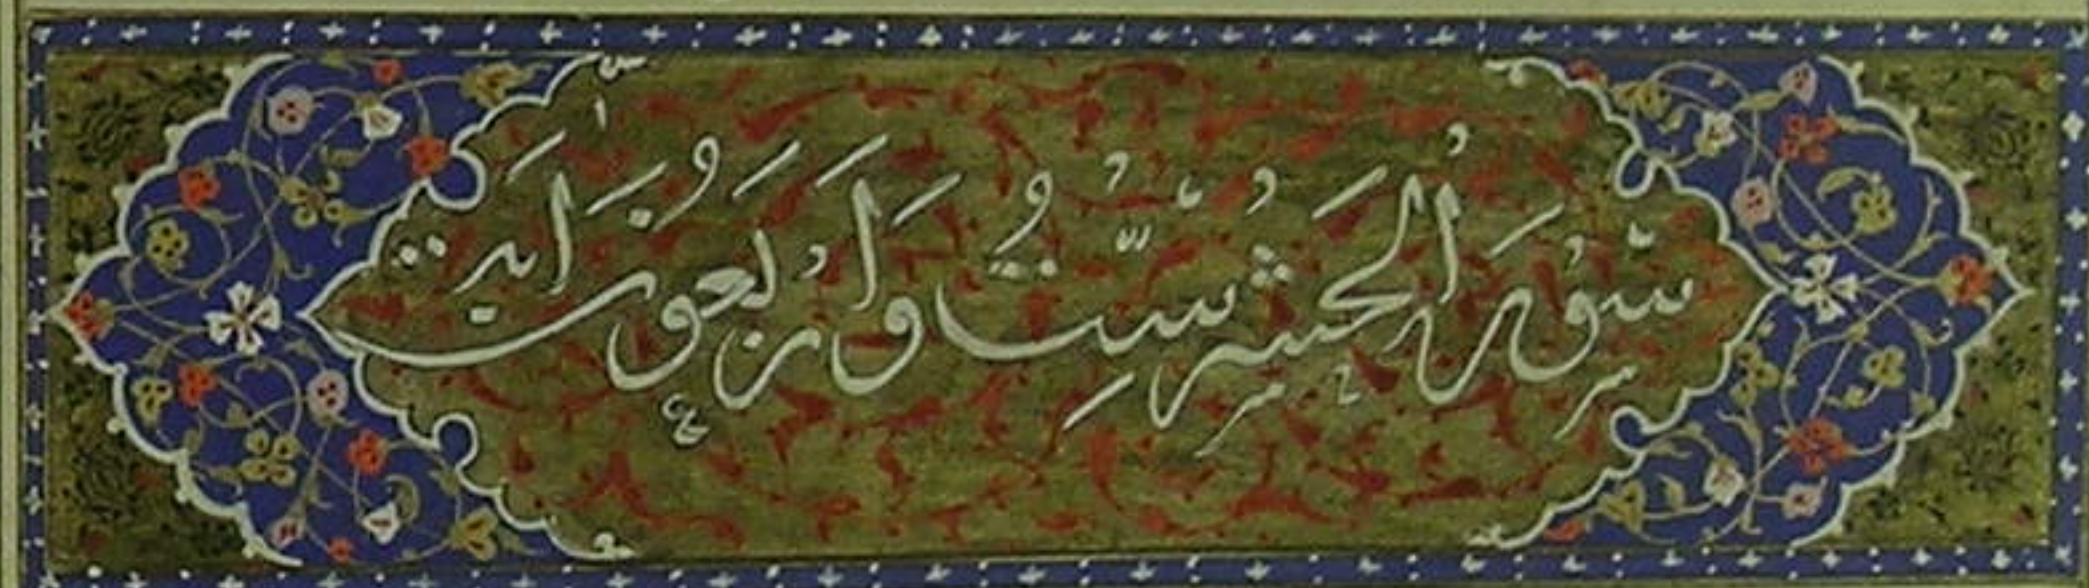 سُورَةُ الْحَشْرِ سِتٌّ وَاَرْبَعُونَ اٰيَة